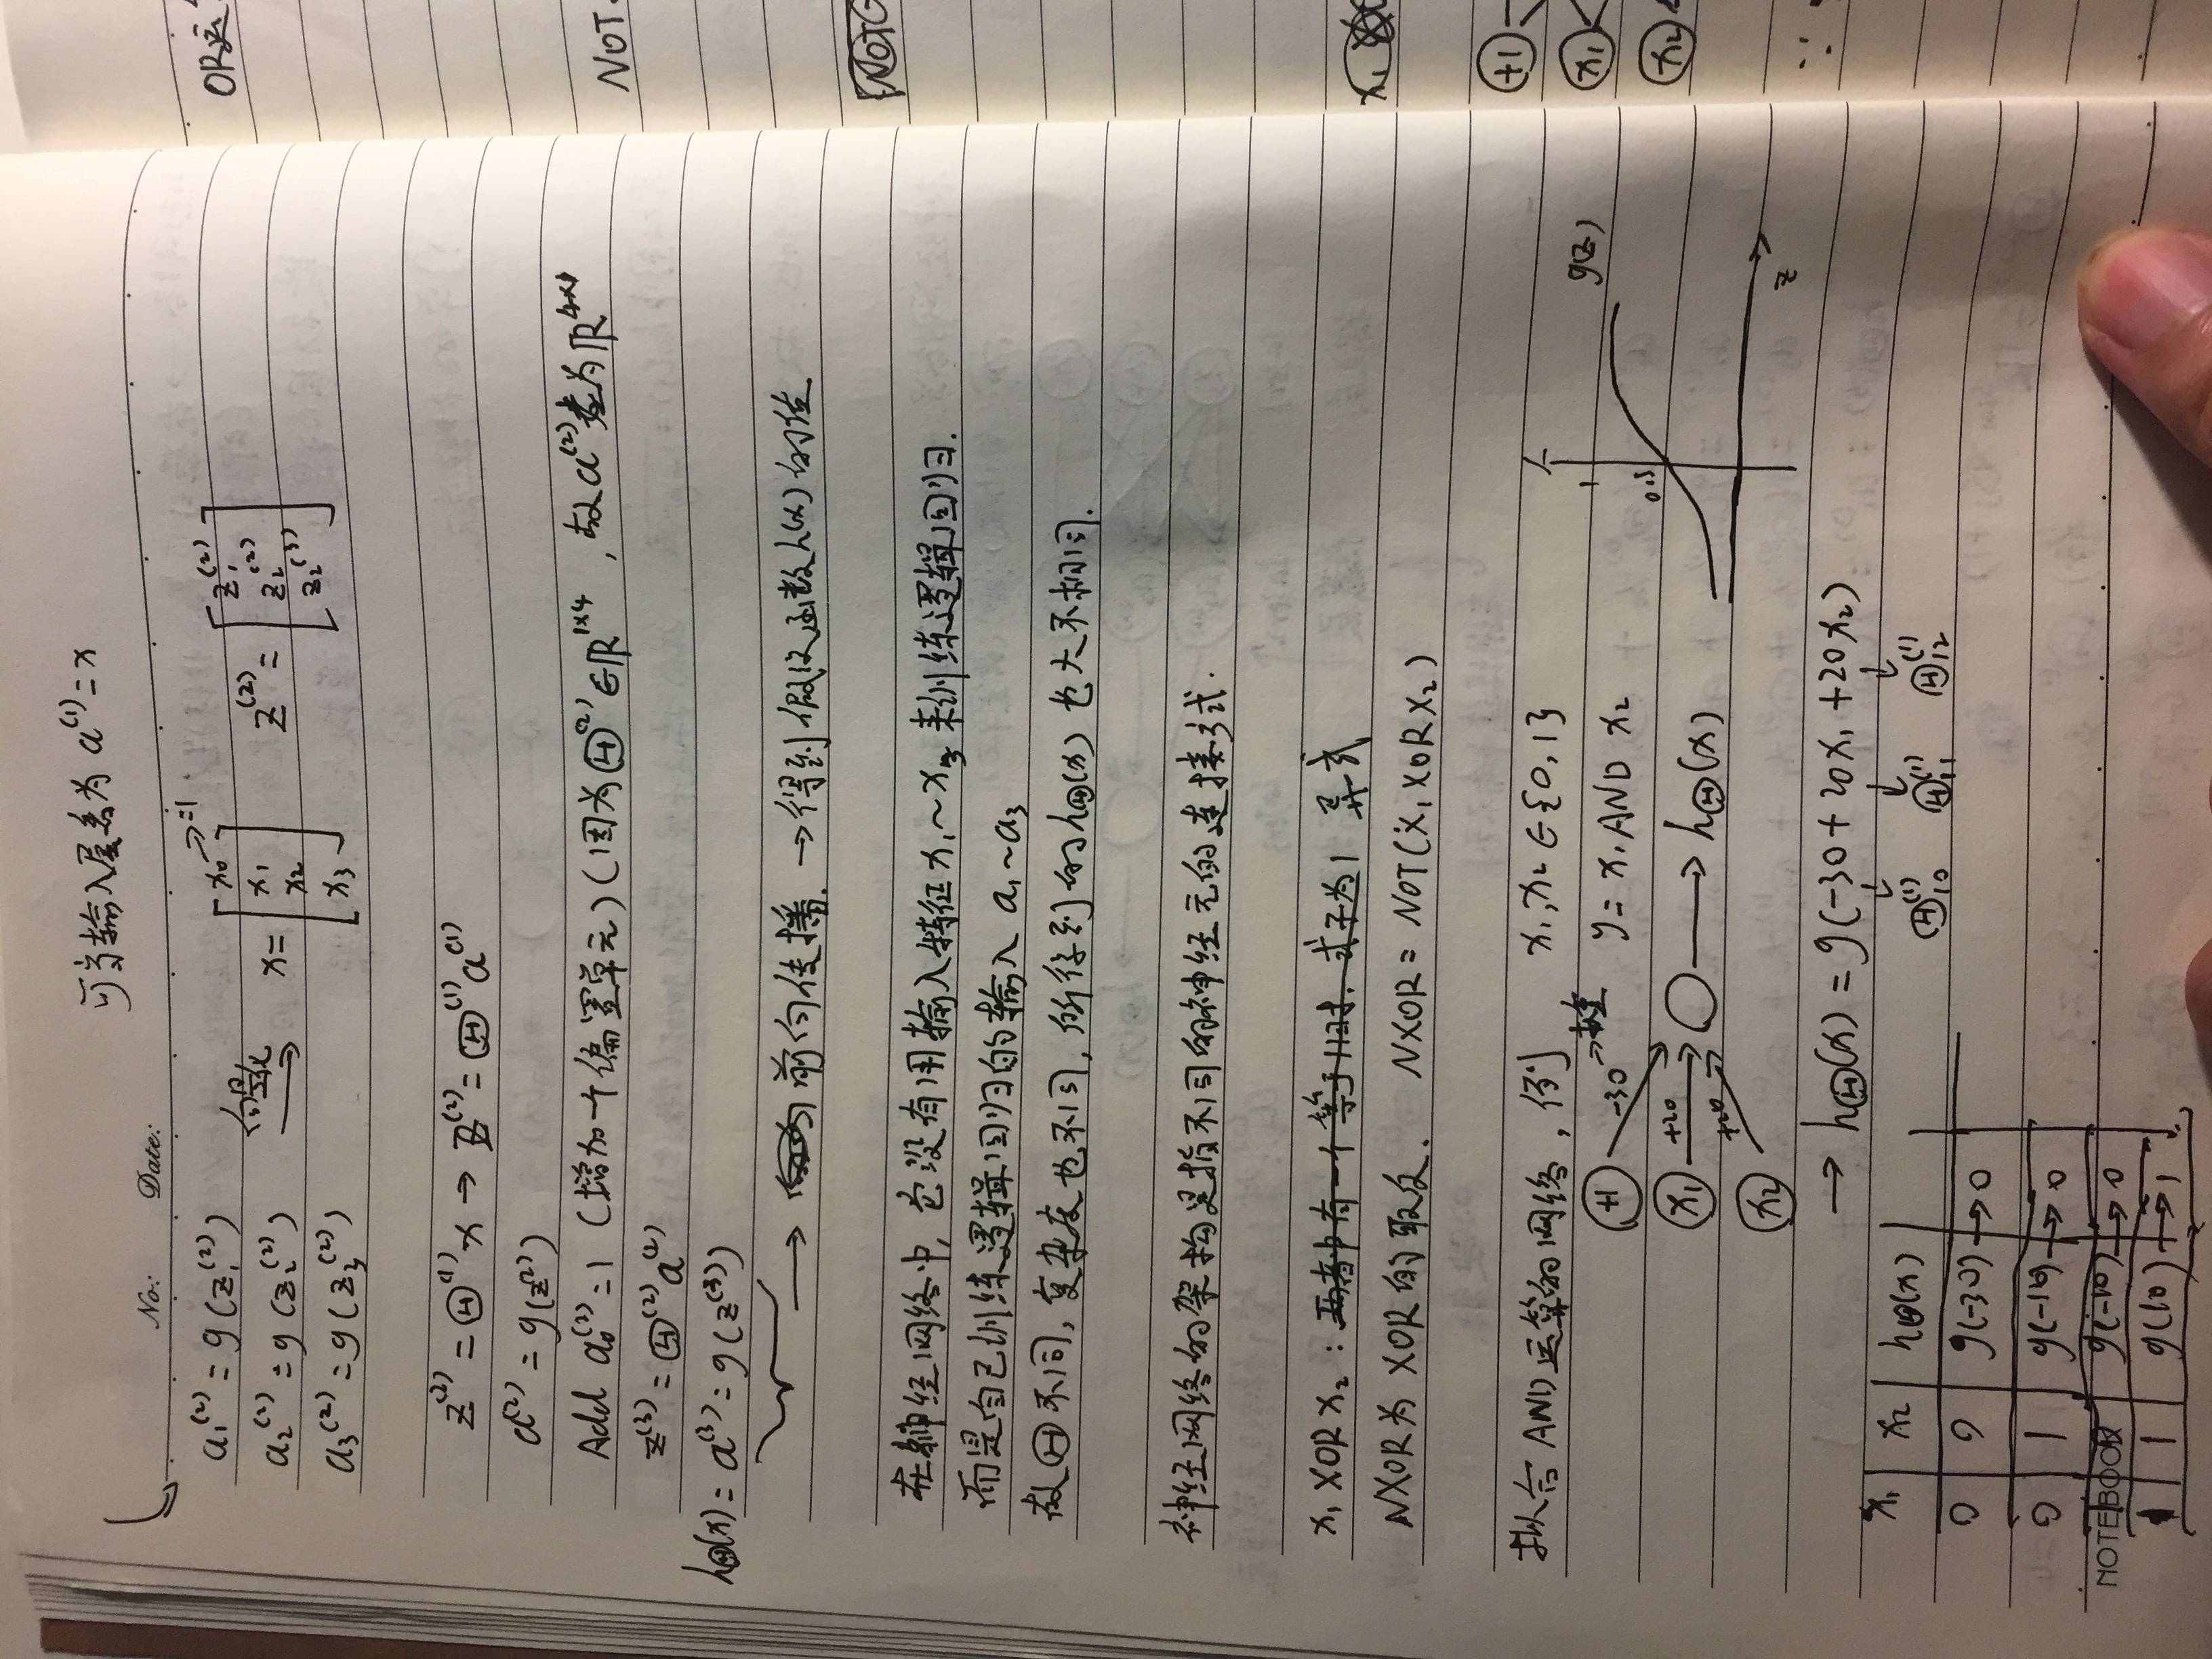 可当输入层看为 a^(1) = x
No: Date:
a₁^(2) = g(z₁^(2))
a₂^(2) = g(z₂^(2))
a₃^(2) = g(z₃^(2))
向量化 →
x = [x₀ → =1, x₁, x₂, x₃]
z^(2) = [z₁^(2), z₂^(2), z₂^(3)]
z^(2) = Θ^(1) x → z^(2) = Θ^(1) a^(1)
a^(2) = g(z^(2))
Add a₀^(2) = 1 (增加一个偏置单元) (因为 Θ^(2) ∈ ℝ^1×4 , 故 a^(2) 为 ℝ^4×1
z^(3) = Θ^(2) a^(2)
hΘ(x) = a^(3) = g(z^(3))
→ 前向传播. → 得到假设函数h(x)的值
在神经网络中, 它没有用输入特征 x₁~x₃ 来训练逻辑回归.
而是自己训练逻辑回归的输入 a₁~a₃
故 Θ 不同, 复杂度也不同, 所得到的 hΘ(x) 也大不相同.
神经网络的架构是指不同的神经元的连接方式.
x₁ XOR x₂ : 两者中有一个等于1时, 式子为1 异式
NXOR为 XOR的取反. NXOR = NOT(x₁ XOR x₂)
拟合AND运算的网络, 例 x₁,x₂ ∈ {0, 1}
y = x₁ AND x₂
+1 -30 →权重
x₁ +20 → hΘ(x)
x₂ +20
1
0.5
g(z)
z
→ hΘ(x) = g(-30 + 20x₁ + 20x₂)
Θ₁₀^(1) Θ₁₁^(1) Θ₁₂^(1)
x₁ x₂ hΘ(x)
0 0 g(-30) → 0
0 1 g(-10) → 0
1 0 g(-10) → 0
1 1 g(10) → 1
NOTEBOOK
OR运
NOT
x₁
+1
x₁
x₂